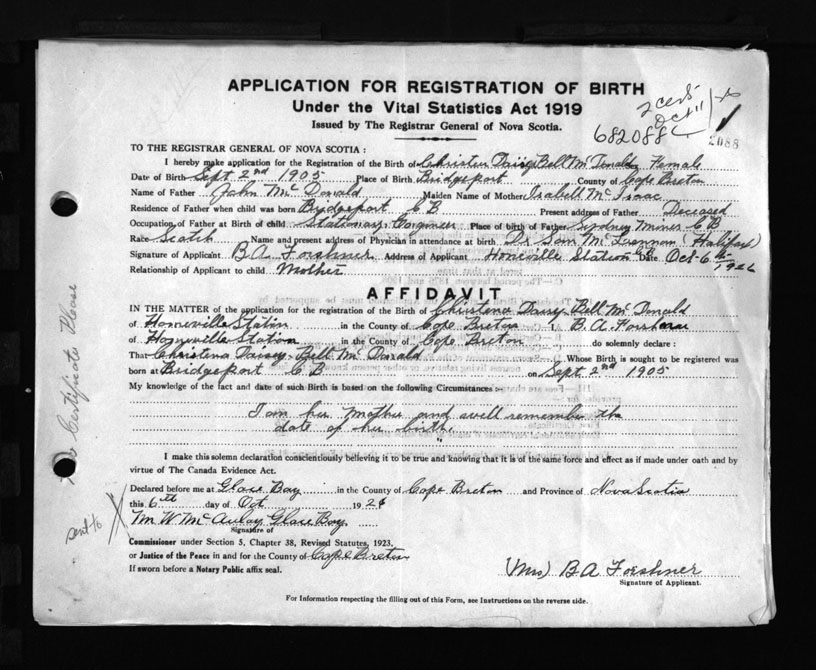 APPLICATION FOR REGISTRATION OF BIRTH
Under the Vital Statistics Act 1919
Issued by The Registrar General of Nova Scotia.
682088
2088
TO THE REGISTRAR GENERAL OF NOVA SCOTIA :
I hereby make application for the Registration of the Birth of Daisy Bell Female
Date of Birth Sept 2nd 1905 Place of Birth Bridgeport County of Cape Breton
Name of Father John McDonald Maiden Name of Mother Isabell McIsaac
Residence of Father when child was born Bridgeport CB Present address of Father Deceased
Occupation of Father at Birth of child Stationary Engineer Place of birth of Father Sydney Mines CB
Race Scotch Name and present address of Physician in attendance at birth Dr (Halifax)
Signature of Applicant B A Forshner Address of Applicant Station Date Oct 6th
1926
Relationship of Applicant to child Mother
AFFIDAVIT
IN THE MATTER of the application for the registration of the Birth of Christena Daisy Bell McDonald
of in the County of Cape Breton I, B. A. Forshner
of Station in the County of Cape Breton do solemnly declare :
That Christena Daisey Bell McDonald Whose Birth is sought to be registered was
born at Bridgeport C B on Sept 2nd 1905
My knowledge of the fact and date of such Birth is based on the following Circumstances :-
I am her Mother and well remember the
date of her birth.
I make this solemn declaration conscientiously believing it to be true and knowing that it is of the same force and effect as if made under oath and by
virtue of The Canada Evidence Act.
Declared before me at Glace Bay in the County of Cape Breton and Province of Nova Scotia
this 6th day of Oct 1926
Wm W McAulay Glace Bay
Signature of
Commissioner under Section 5, Chapter 38, Revised Statutes, 1923,
or Justice of the Peace in and for the County of Cape Breton
If sworn before a Notary Public affix seal.
(Mrs) B A Forshner
Signature of Applicant.
For Information respecting the filling out of this Form, see Instructions on the reverse side.
Certificate Please